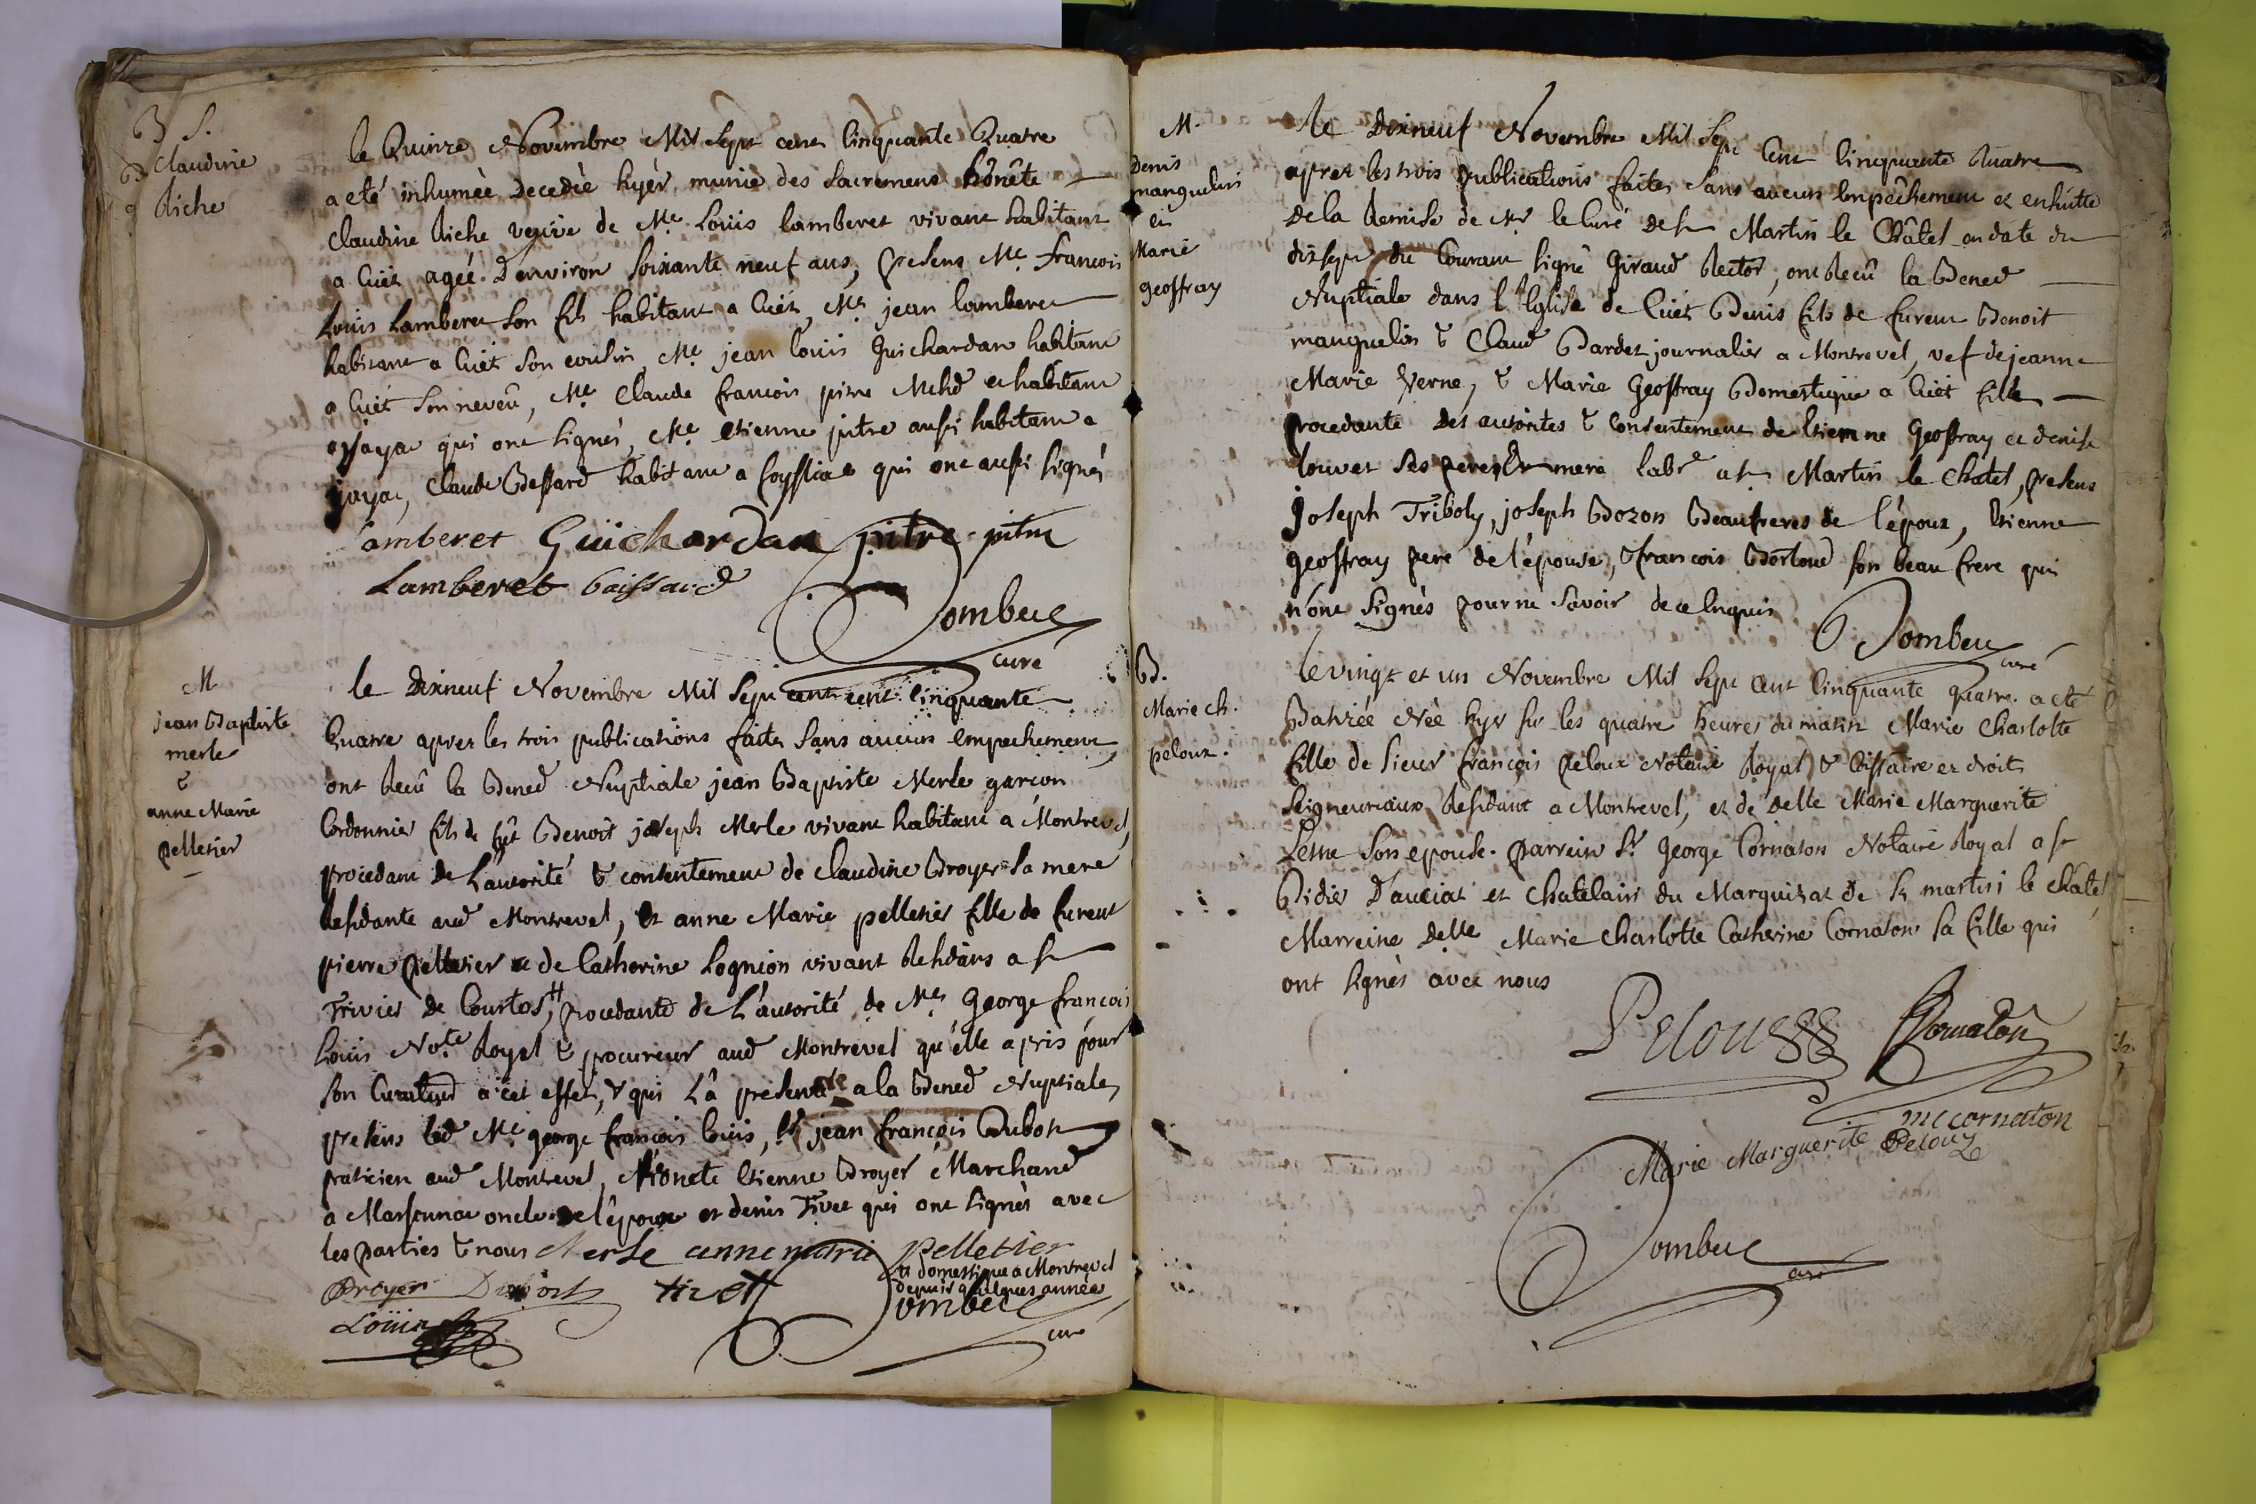 S.
Claudine
Riche
le Quinze Novembre Mil sept cent Cinquante Quatre
a eté inhumée decedée hyér munie des sacremens hônête
Claudine Riche veuve de Me Loüis lamberet vivant habitant
a Cuét agée d'environ soixante neuf ans, presens Me francois
Loüis Lamberet son fils habitant a Cuét, Me jean lamberet
habitant a Cuét son cousin, Me jean loüis Guichardan habitant
a Cuét son neveû, Me Claude francois pitre Mchd et habitant
a jayat qui ont signés, Me etienne pitre aussi habitant a
jayat, Claude habitant a foyssiat qui ont aussi signés
lamberet Guichardan pitre pitre
Lamberet baissard
Dombeÿ
curé
M
jean Baptiste
merle
&
anne Marie
pelletier
le dixneuf Novembre Mil sept cent cent Cinquante
Quatre apres les trois publications faites sans aucun empechement
ont reçû la Bened Nuptiale jean Baptiste Merle garcon
Cordonnier fils de fût Benoit joseph Merle vivant habitant a Montrevel,
procedant de l'autorité & consentement de claudine Broyer sa mere
residante aud Montrevel, et anne Marie pelletier fille de fureut
pierre pelletier et de Catherine Lognion vivant residans a st
Trivier de Courtos, procedante de L'autorité de Me George francois
Loüis Note Royal & procureur aud Montrevel qu'elle a pris pour
son Curateur a cet effet, & qui L'â presenté a la Bened Nuptiale
presens led Me george francois loüis, Sr jean françois Dubost
praticien aud Montrevel, hônete Etienne Broyer Marchand
a Marsonnat oncle de l'époux et denis Tivet qui ont signés avec
les parties & nous Merle anne marie pelletier
# domestique a Montrevel
depuis quelques années
Broyer Dubost tivet Dombeÿ
Loüis curé
M.
denis
manguelin
et
Marie
geoffray
le dixneuf Novembre Mil sept Cent Cinquante Quatre
apres les trois publications faites sans aucun Empêchement et ensuitte
de la Remise de Mr le Curé de st Martin le Châtel en date du
dixsept du Courant signé Giraud Rector, ont Recû la Bened
Nuptiale dans l'Eglise de Cuét Denis fils de fureut Benoit
manguelin & Claud Bardet journalier a Montrevel, vef de jeanne
Marie Verne, & Marie Geoffray Domestique a Cuét fille
procedante des autorites & Consentement de Etienne Geoffray et denise
louvet ses peres & mere labr a st Martin le Chatel, presens
joseph Triboly, joseph Bozon Beaufreres de l'époux, Etienne
geoffray pere de l'épouse, & francois son beau frere qui
n'ont signés pour ne savoir de ce Enquis
Dombeÿ
curé
B.
Marie ch.
peloux.
le vingt et un Novembre Mil sept cent Cinquante quatre a eté
Batizée née hyer sur les quatre heures du matin Marie Charlotte
fille de sieur francois peloux Notaire Royal & Cissaire et droits
seigneuriaux Residant a Montrevel, et de delle Marie Marguerite
son epouse. parrein Sr George Cornaton Notaire Royal a st
Didier D'auciat et chatelain du Marquizat de st martin le châtel,
Marreine delle Marie Charlotte Catherine Cornaton sa fille qui
ont signés avec nous
Peloux Cornaton
mc cornaton
Marie Marguerite Peloux
Dombeÿ
curé